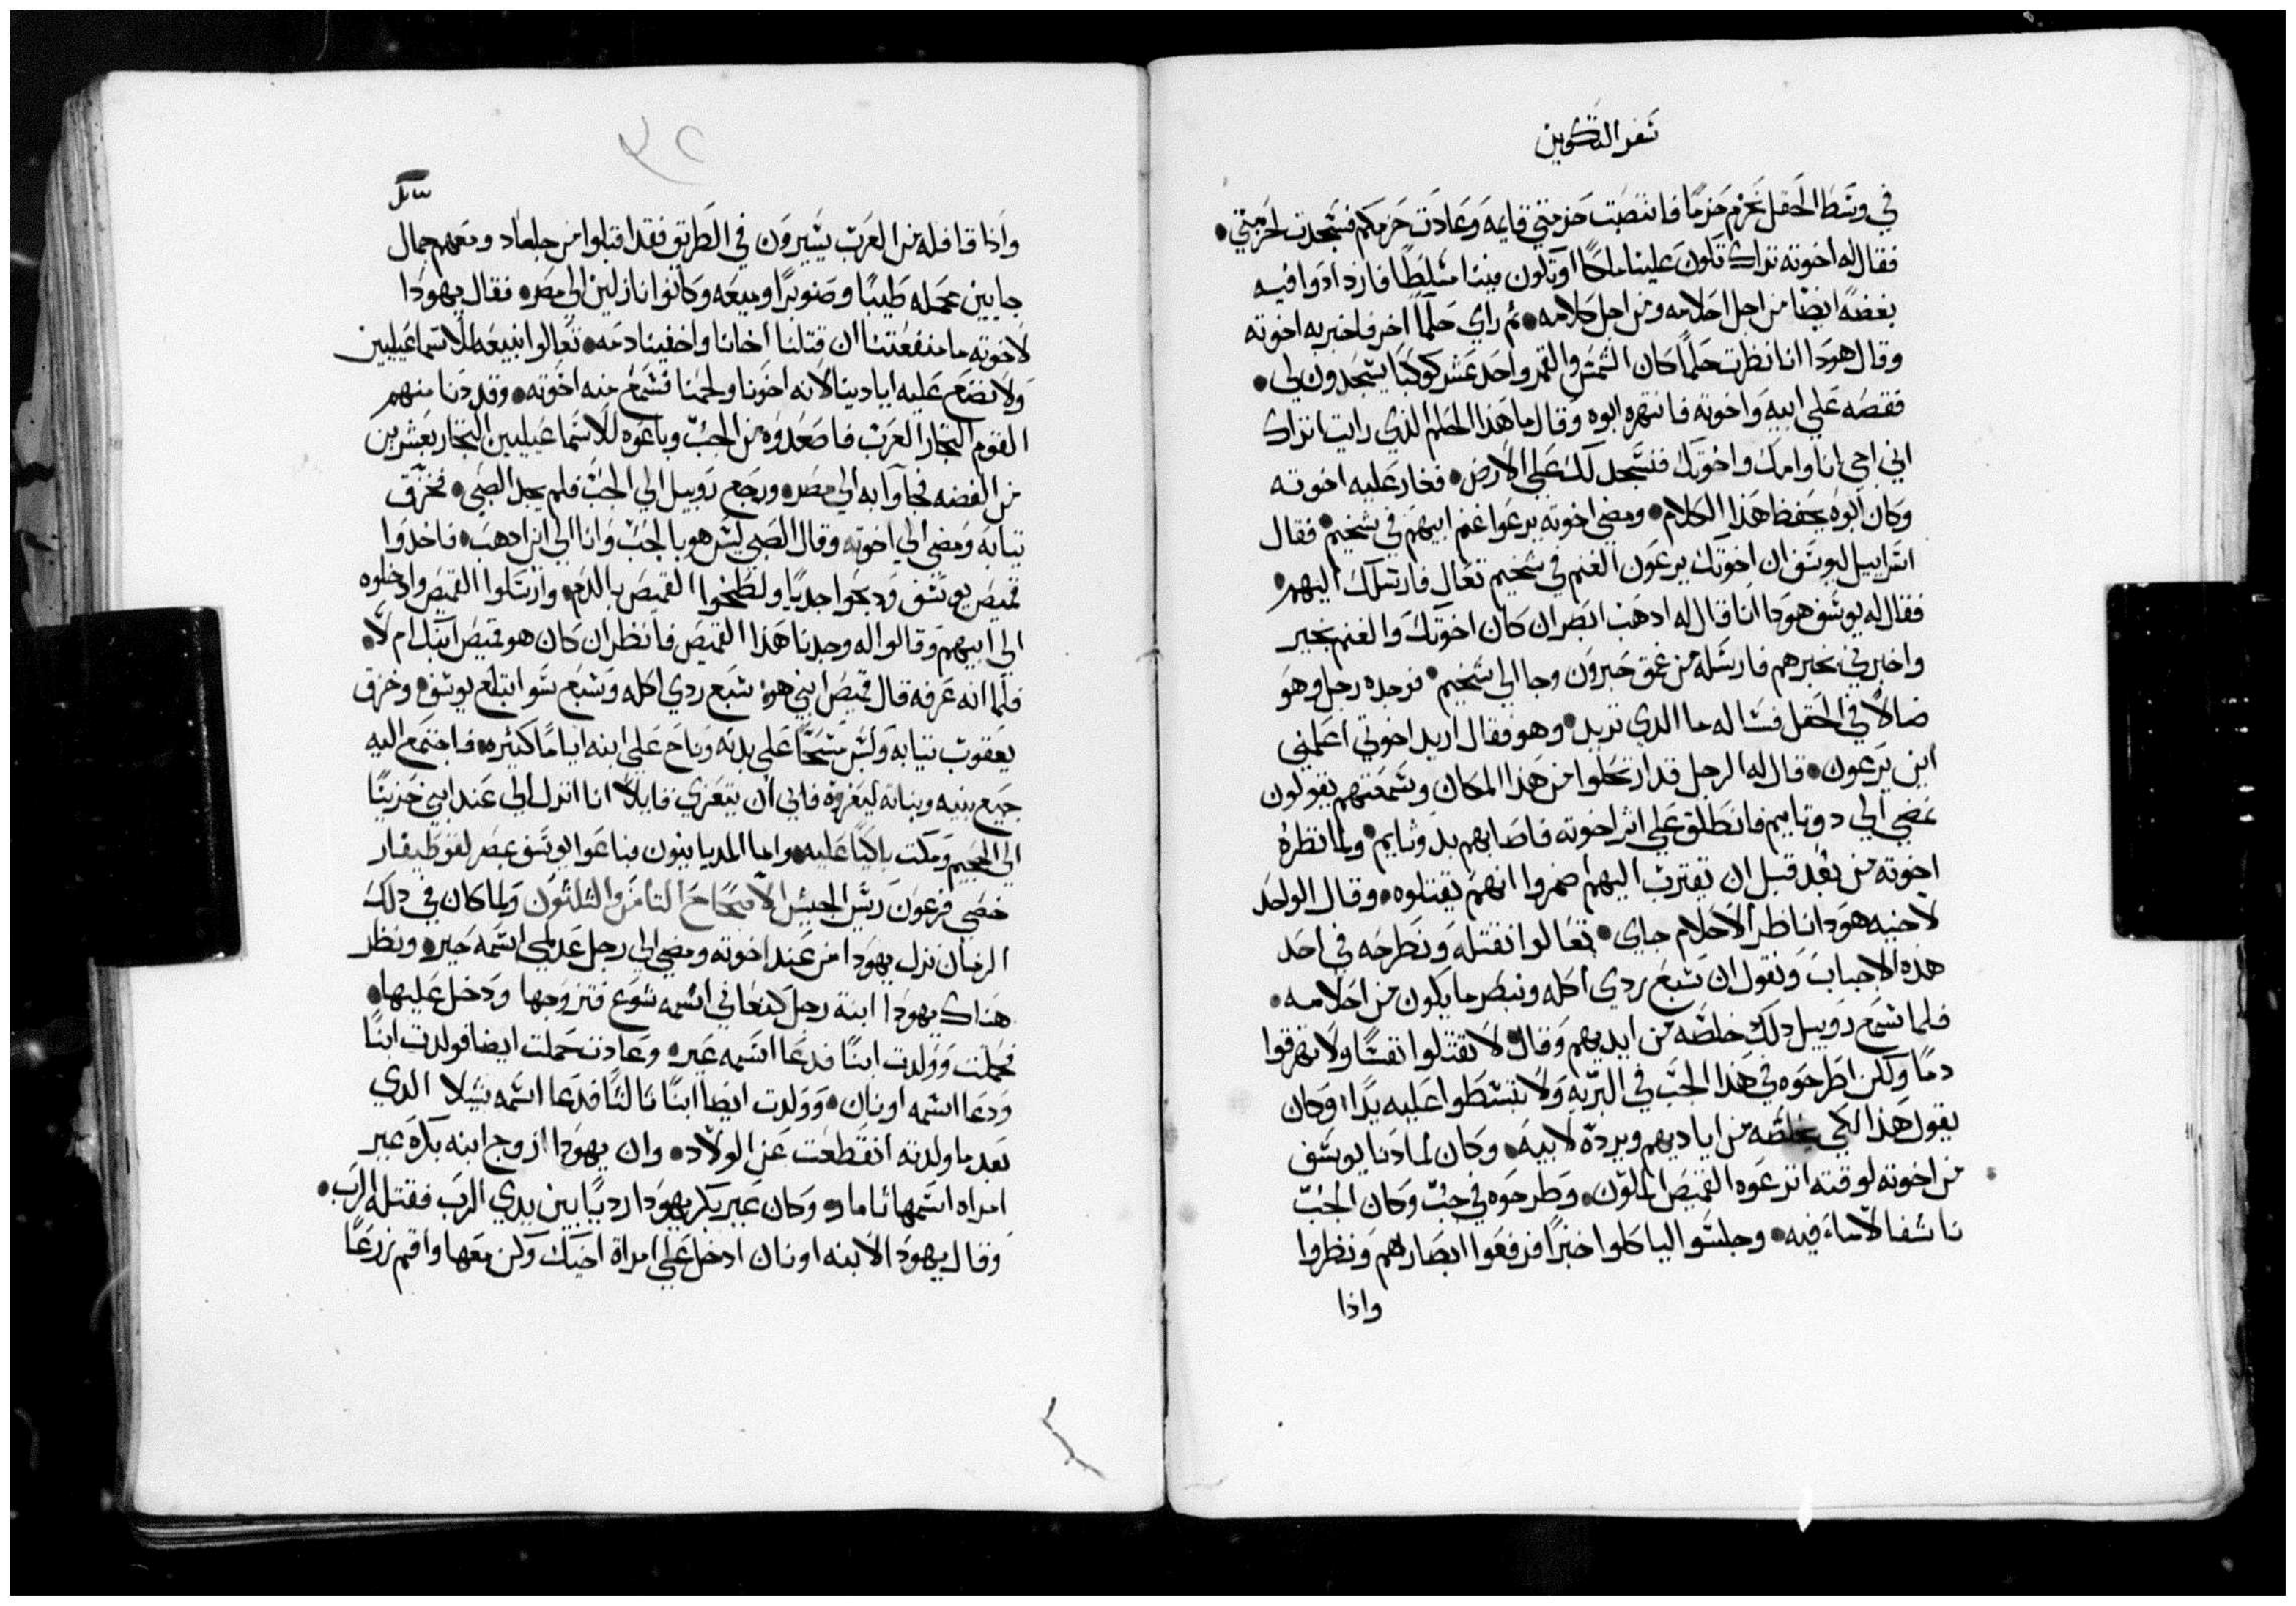 سفر التكوين
في وسط الحقل نحزم حزمًا فانتصبت حزمتي قايمه وعادت حزمكم فسجدت لحزمتي
فقال له اخوته تراك تكون علينا ملكًا او تكون فينا متسلطًا فازدادوا فيه
بغضةً ايضا من اجل احلامه ومن اجل كلامه ثم راي حلمًا اخر فاخبر به اخوته
وقال هودا انا نظرت حلمًا كان الشمس والقمر واحد عشر كوكبًا يسجدون لي
فقصه علي ابيه واخوته فانتهره ابوه وقال ما هذا الحلم الذي رايت اتراك
اني اجي انا وامك واخوتك فنسجد لك علي الارض فغار عليه اخوته
وكان ابوه يحفظ هذا الكلام ومضي اخوته يرعوا غنم ابيهم في شخيم فقال
اسراييل ليوسف ان اخوتك يرعون الغنم في شخيم تعال فارسلك اليهم
فقال له يوسف هودا انا قال له ادهب ابصر ان كان اخوتك والغنم بخير
واخبرني بخبرهم فارسله من عمق حبرون وجا الي شخيم فوجده رجل وهو
ضالاً في الحقل فساله ما الدي تريد وهو فقال اريد اخوتي اعلمني
اين يرعون قال له الرجل قد ارتحلوا من هذا المكان وسمعتهم يقولون
نمضي الي دوتاييم فانطلق علي اثر اخوته فاصابهم بدوثايم ولما نظره
اخوته من بعد قبل ان يقترب اليهم اضمروا انهم يقتلوه وقال الواحد
لاخيه هودا ناظر الاحلام جاي تعالوا نقتله ونطرحه في احد
هذه الاجباب ونقول ان سبع ردي اكله ونبصر ما يكون من احلامه
فلما سمع روبيل دلك خلصه من ايديهم وقال لا تقتلوا نفسًا ولا تهرقوا
دمًا ولكن اطرحوه في هذا الجب في البريه ولا تبسطوا عليه يدًا وكان
يقول هذا لكي يخلصه من اياديهم ويرده لابيه وكان لما دنا يوسف
من اخوته لوقته انزعوه القميص الملون وطرحوه في جب وكان الجب
ناشفا لا ماء فيه وجلسوا لياكلوا خبزًا فرفعوا ابصارهم ونظروا
واذا
٣٢
واذا قافله من العرب يسيرون في الطريق فقد اقبلوا من جلعاد ومعهم جمال
جايين محمله طيبًا وصنوبرًا وميعه وكانوا نازلين الي مصر فقال يهودا
لاخوته ما منفعتنا ان قتلنا اخانا واخفينا دمه تعالوا نبيعه للاسماعيليين
ولا نضع عليه ايادينا لانه اخونا ولحمنا فسمع منه اخوته وقد دنا منهم
القوم التجار العرب فاصعدوه من الجب وباعوه للاسماعيليين التجار بعشرين
من الفضه فجاوا به الي مصر ورجع روبيل الي الجب فلم يجد الصبي فخزق
تيابه ومضي الي اخوته وقال الصبي ليس هو بالجب وانا الي اين ادهب فاخدوا
قميص يوسف ودبحوا جديًا ولطخوا القميص بالدم وارسلوا القميص وادخلوه
الي ابيهم وقالوا له وجدنا هذا القميص فانظر ان كان هو قميص ابنك ام لا
فلما انه عرفه قال قميص ابني هو سبع ردي اكله وسبع سو ابتلع يوسف وخزق
يعقوب تيابه ولبس مسحًا علي بدنه وناح علي ابنه ايامًا كثيره فاجتمع اليه
جميع بنيه وبناته ليعزوه فابي ان يتعزي قايلاً انا انزل الي عند ابني حزينًا
الي الجحيم ومكت باكيًا عليه واما المديانيون فباعوا يوسف بمصر لفوطيفار
خصي فرعون ريس الجيش الاصحاح التامن والثلثون ولما كان في دلك
الزمان نزل يهودا من عند اخوته ومضي الي رجل عدلمي اسمه حيره ونظر
هناك يهودا ابنة رجل كنعاني اسمه شوع فتزوجها ودخل عليها
فحملت وولدت ابنًا فدعا اسمه عير وعادت حملت ايضا فولدت ابنًا
ودعا اسمه اونان وولدت ايضا ابنًا ثالثًا فدعا اسمه شيلا الدي
بعد ما ولدته انقطعت عن الولاد وان يهودا ازوج ابنه بكره عير
امراه اسمها ثامار وكان عير بكر يهودا رديًا بين يدي الرب فقتله الرب
وقال يهودا لابنه اونان ادخل علي امراة اخيك وكن معها واقم زرعًا